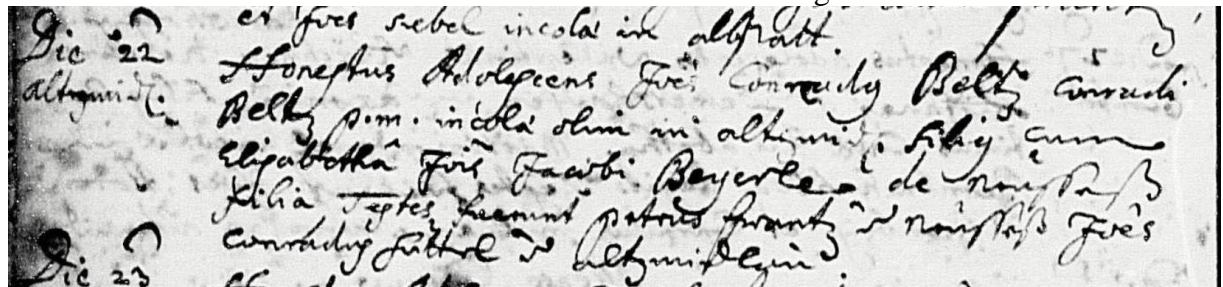 et Joes siebel incola in albstatt.
Die 22 Honestus Adolescens Joes Conradus Beltz Conradi
altzmid. Beltz p.m. incola olim in altzmid. filius cum
Elisabetha Jois Jacobi Beyerle de neusses
filia Testes fuerunt petrus frantz de neusses Joes
conradus de altzmidlein
Die 23